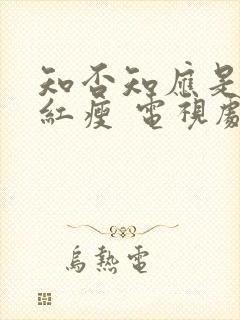 知否知應是
紅瘦 電視劇
烏熱電